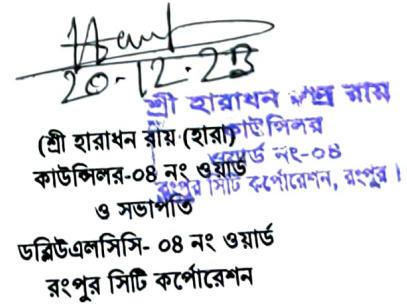 20-12-23
শ্রী হারাধন চন্দ্র রায়
কাউন্সিলর
ওয়ার্ড নং-০৪
রংপুর সিটি কর্পোরেশন, রংপুর।
(শ্রী হারাধন রায় (হারা)
কাউন্সিলর-০৪ নং ওয়ার্ড
ও সভাপতি
ডব্লিউএলসিসি- ০৪ নং ওয়ার্ড
রংপুর সিটি কর্পোরেশন